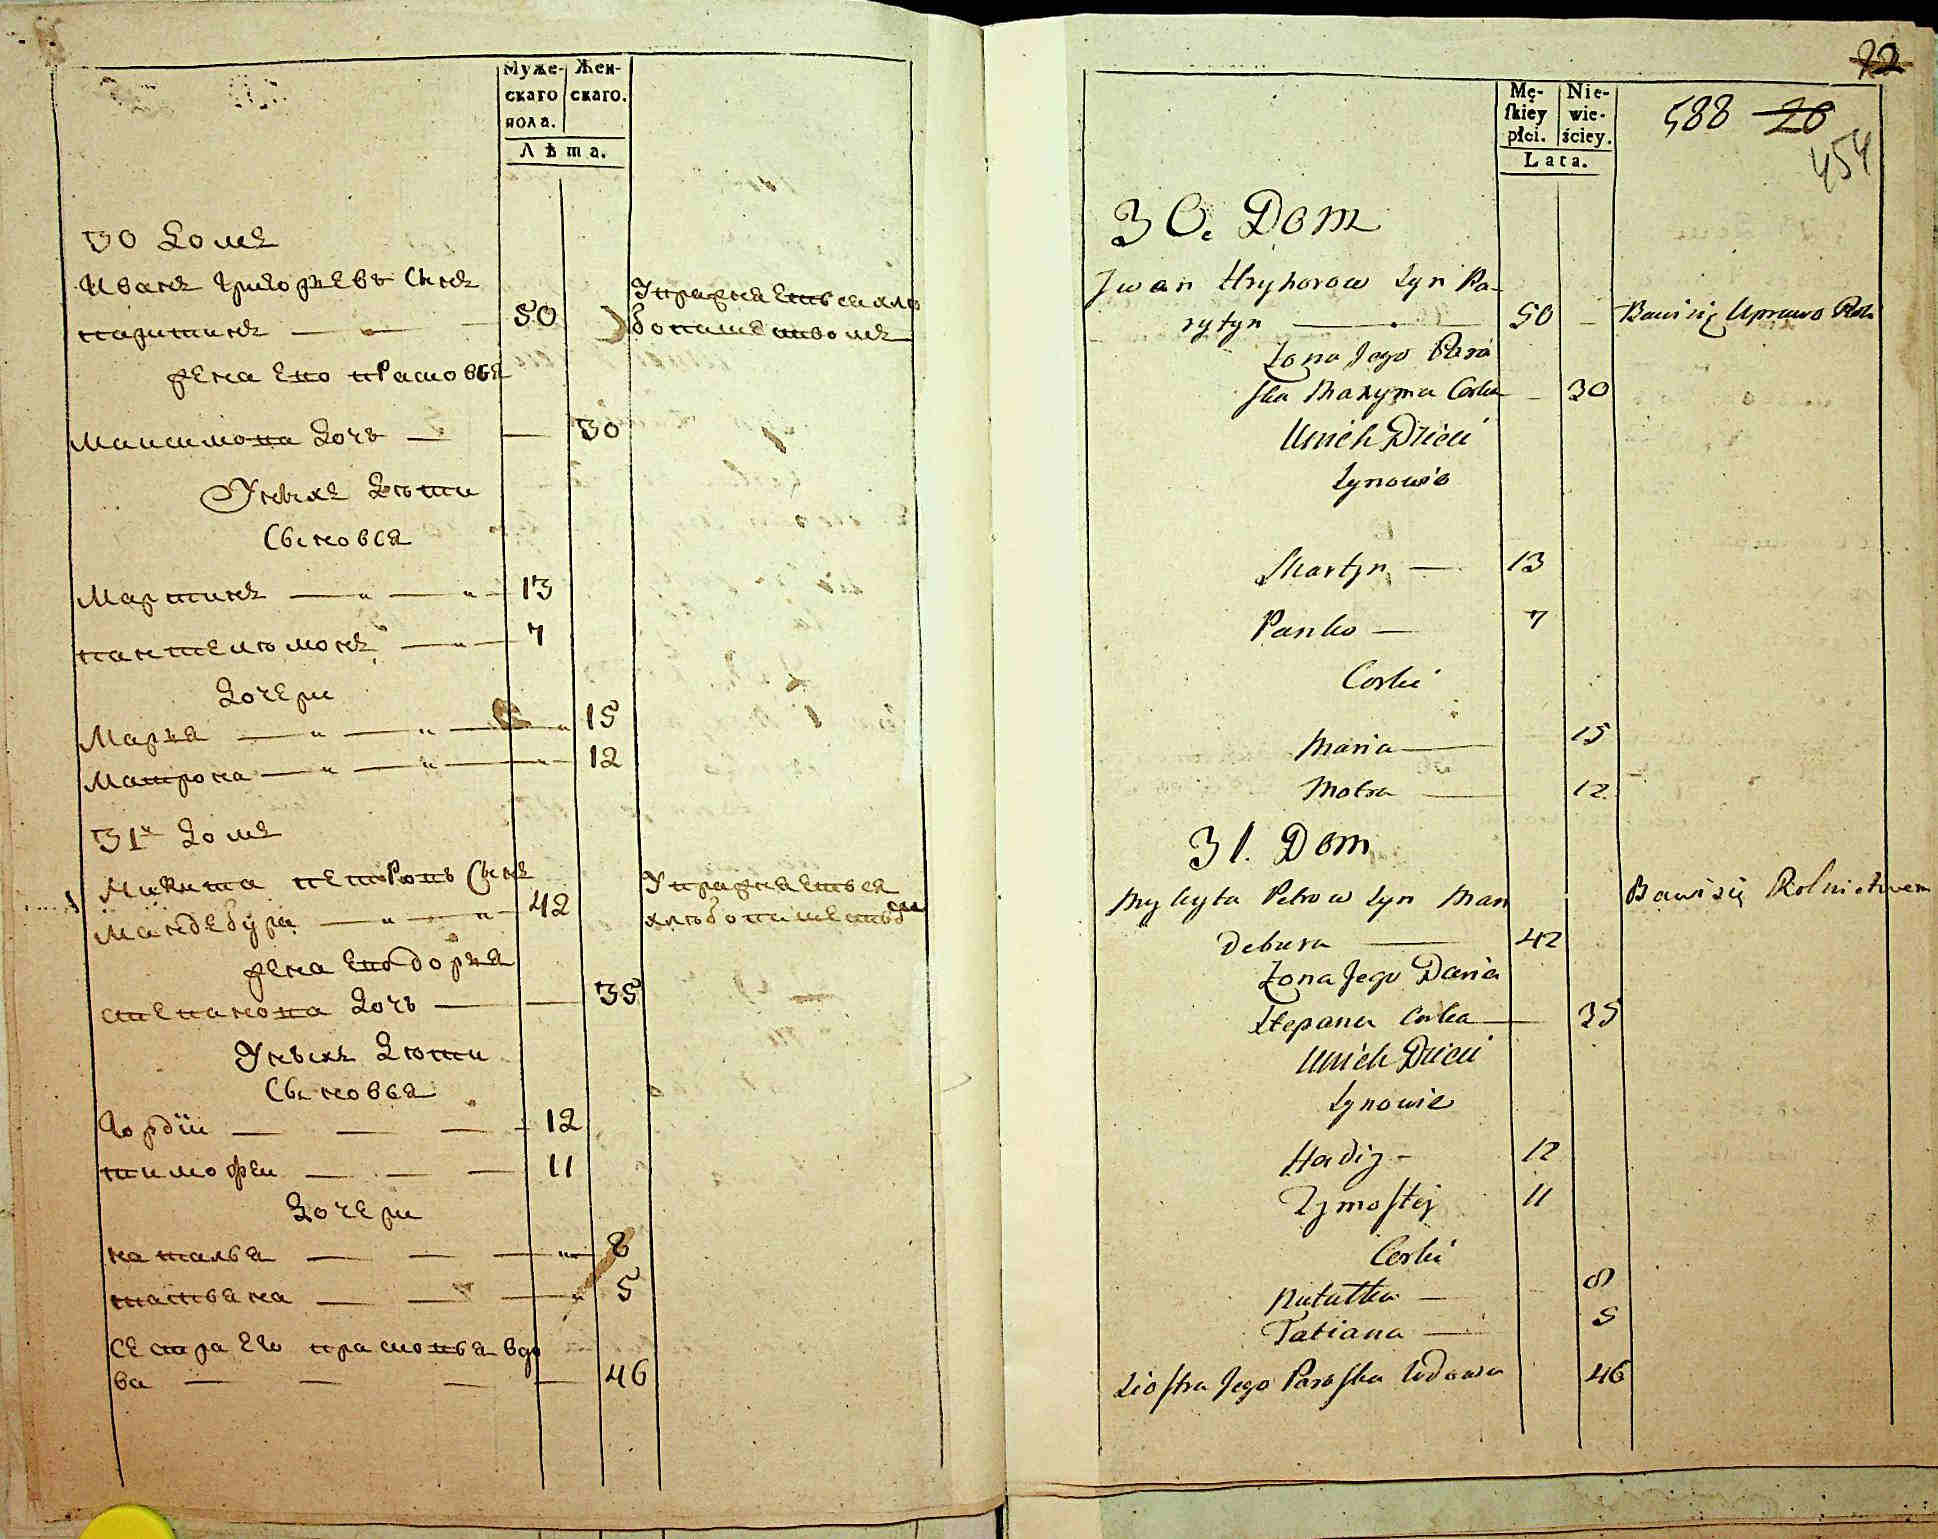 Муже-
скаго
пола.
Жен-
скаго.
Лѣта.
30 Домъ
Иванъ Григорьевъ Сынъ
паритинъ 50 Упражняеться хлѣ
бопашеством
жена его прасковья
максимова Дочь 30
У нихъ Дѣти
Сыновья
Мартинъ 13
пантелѣмонъ 7
Дочери
Марья 15
Матрона 12
31й Домъ
Микита петровъ Сынъ
Мандебура 42
Упражняеться
хлѣбопашеством
жена его дорья
степанова Дочь 35
У нихъ Дѣти
Сыновья
Гордїи 12
тимофеи 11
Дочери
наталья 8
татьяна 5
сестра его прасковья вдо
ва 46
22
Mę-
skiey
płci.
Nie-
wie-
ściey.
Lata.
588 26
454
30. Dom
Iwan Hryhorow Syn Pa-
rytyn 50 Bawi się Uprawo Roli
Żona Jego Para
ska Maxyma Corka 30
U nich Dzieci
Synowie
Martyn 13
Panko 7
Corki
Maria 15
Motra 12
31. Dom
Mykyta Petrow Syn Man
debura 42
Bawi się Rolnictwem
Żona Jego Daria
Stepana Corka 35
U nich Dzieci
Synowie
Hardiy 12
Tymofiey 11
Corki
Natalka 8
Tatiana 5
Siostra Jego Paraska Wdowa 46